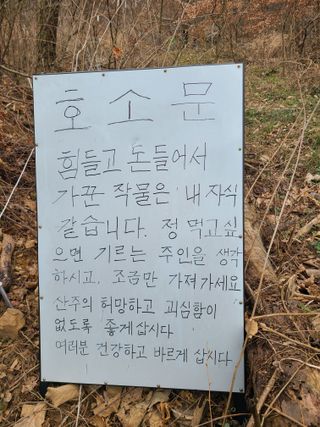 호소문
힘들고 돈들어서
가꾼 작물은 내 자식
같습니다. 정 먹고싶
으면 기르는 주인을 생각
하시고. 조금만 가져가세요
산주의 허망하고 괴심함이
없도록 좋게 삽시다
여러분 건강하고 바르게 삽시다